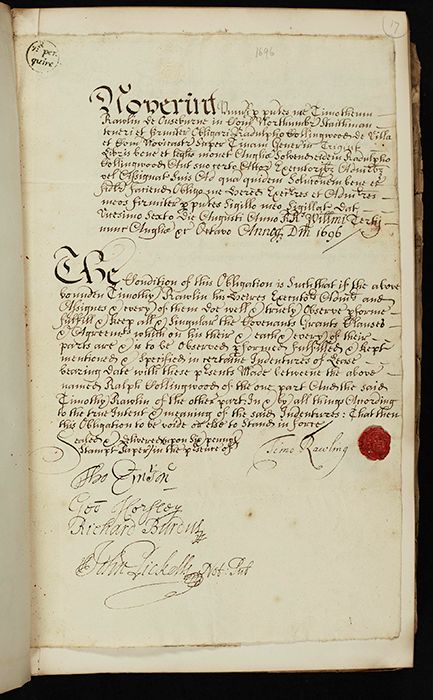 vi per quire
17
1696
Noverint Univsi p pntes me Timotheum
Rawlin de Ouseburne in Com Northumbr
teneri et firmiter Obligari Radulpho Collingwood de Villa
et Com Novicastr super Tinam Generos in Trigint
Libris bone et legalis monet Anglie Solvend eidem Radulpho
Collingwood aut suo certo Attor Executoribz Administr
vel Assignat suis Ad qua quidem Solutionem bene et
fidlr faciend Obligo me heredes Execut et Admistr
meos firmiter p pntes Sigillo meo Sigillat Dat
Vicesimo Sexto die Augusti Anno RRs Willmi Tertij
nunc Anglie &c Octavo Annoq Dni 1696
The Condition of this Obligation is Such that if the above
bounden Timothy Rawlin his heires Executrs Admrs and
Assignes & every of them doe well & truely Observe pforme
fulfill & keep all & Singular the Covenants Grants Clauses
& Agreemts which on his their & each & every of their
parts are & is to be Observed pformed fulfilled & kept
mentioned & Specified in certaine Indentures of Lease
bearing Date with these presents Made betweene the above
named Ralph Collingwood of the one part And the said
Timothy Rawlin of the other part In & by all things According
to the true Intent & meaning of the said Indentures : That then
this Obligation to be voide or else to Stand in force
Sealed & Delivered upon Six penny
Stampt Paper in the psence of
Timo Rawling
Tho
Geo Horsley
Richard
John Not Pub